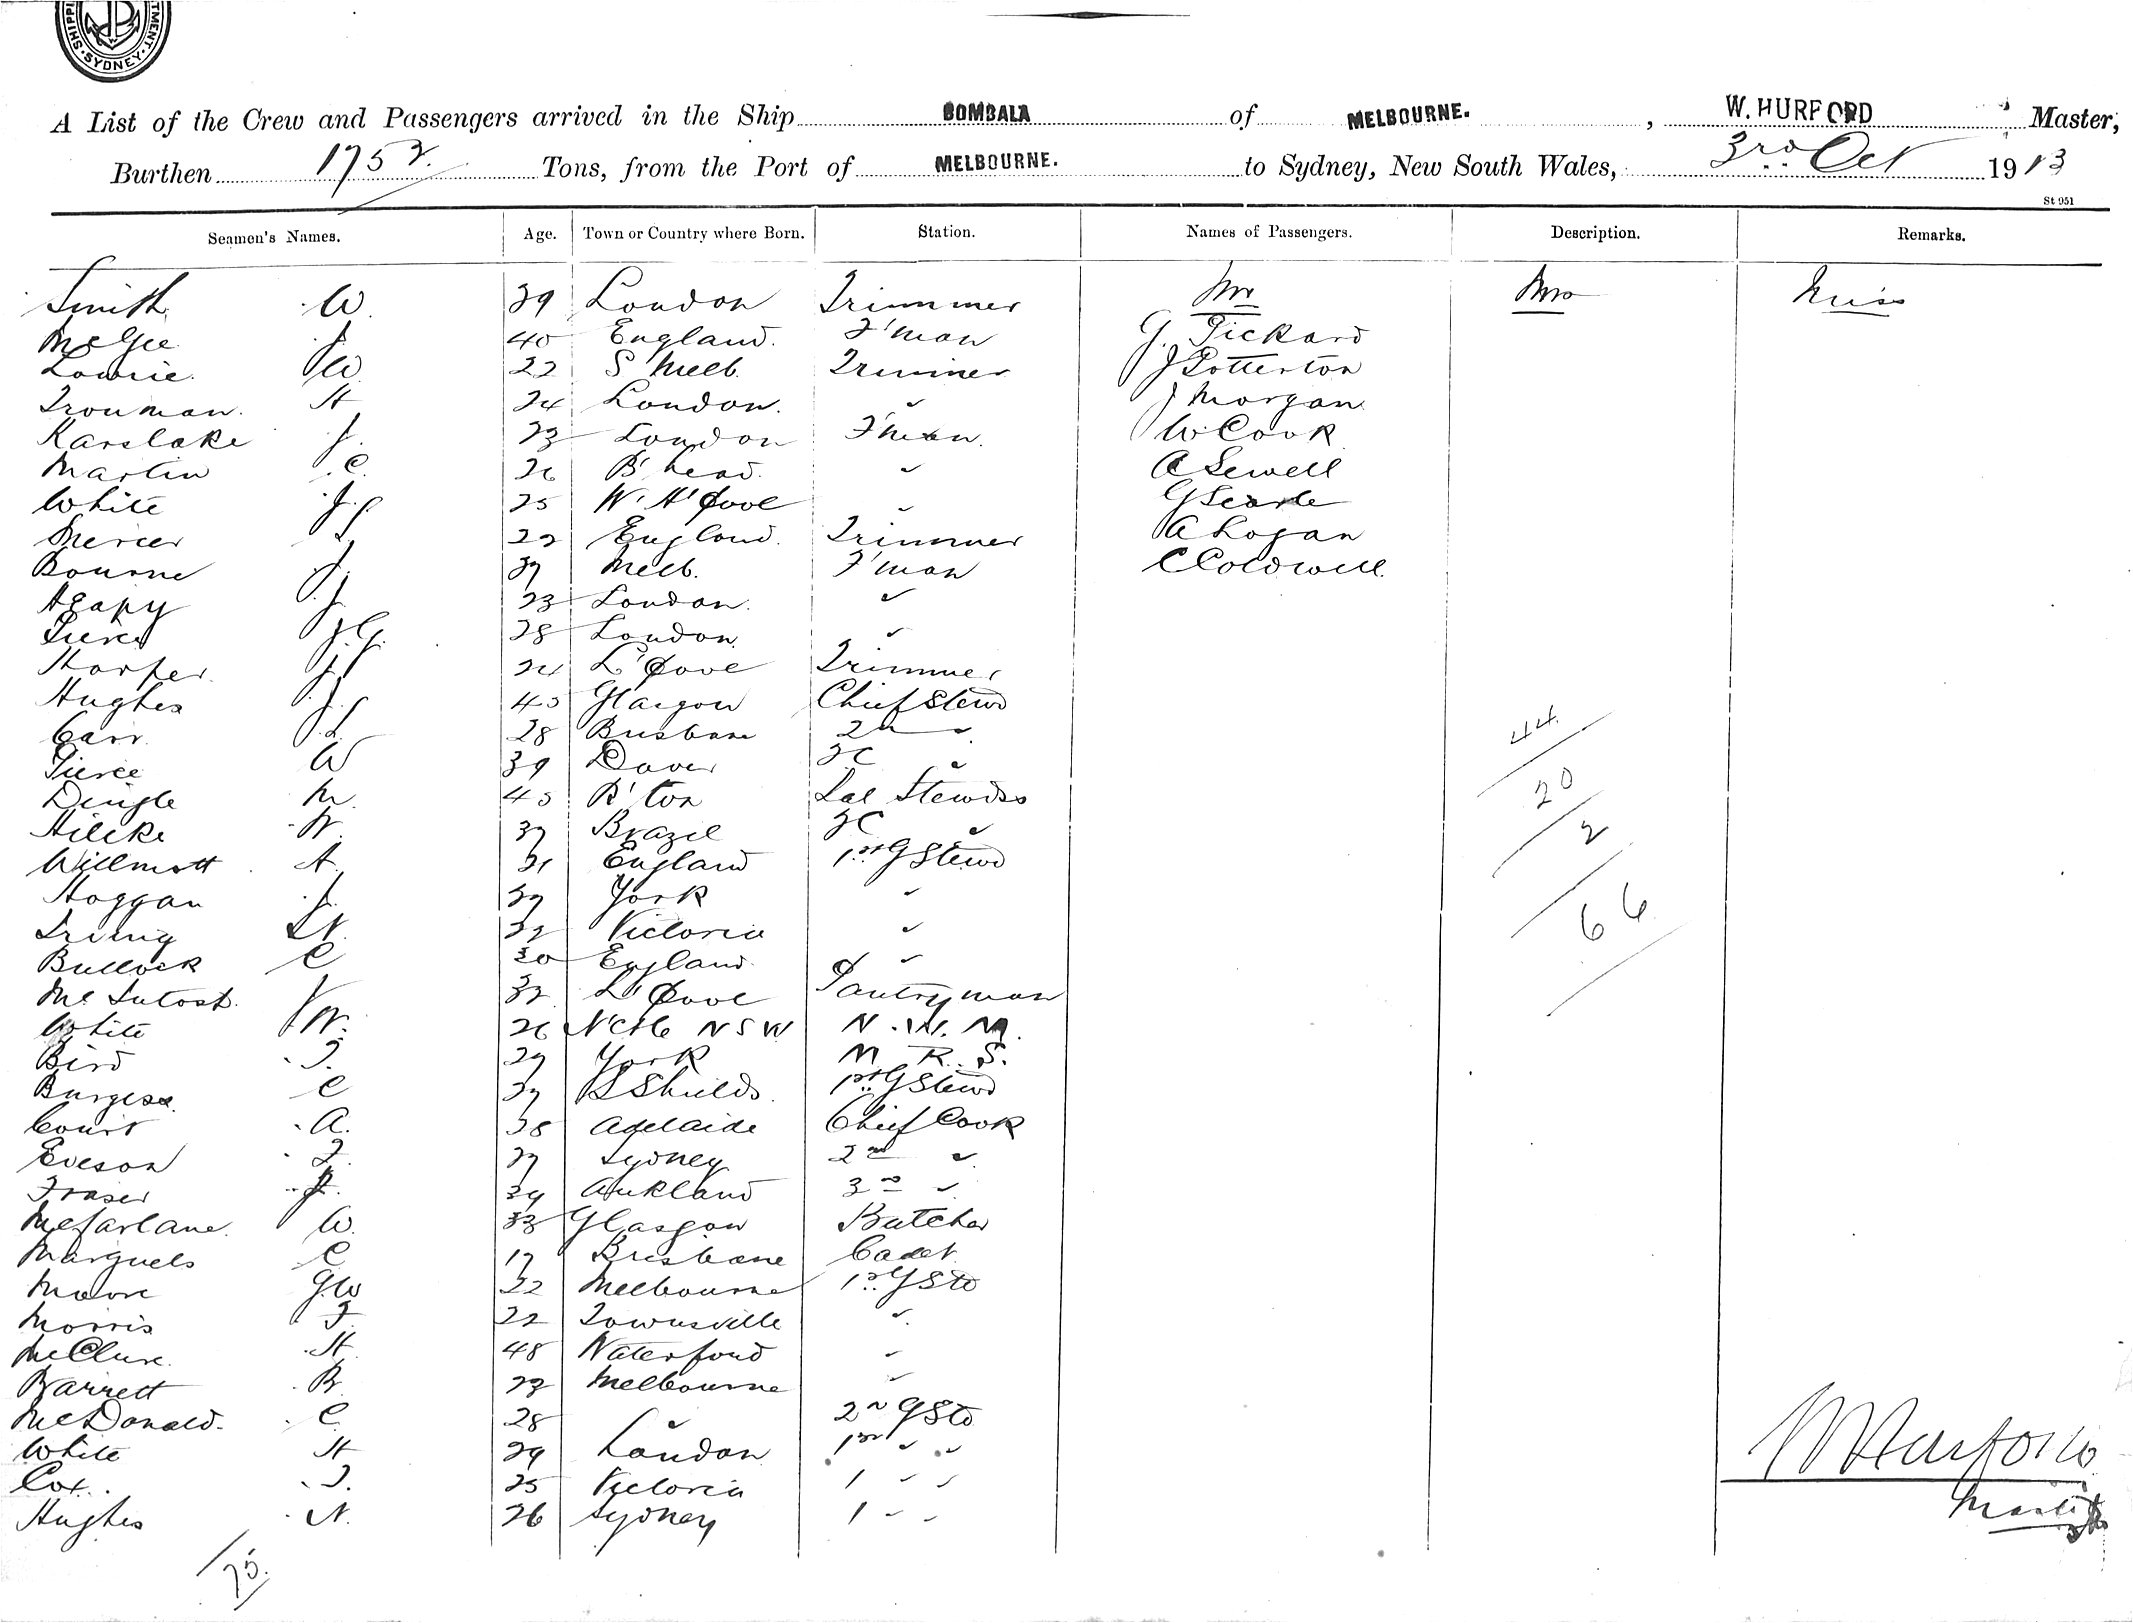 SYDNEY
A List of the Crew and Passengers arrived in the Ship BOMBALA of MELBOURNE. , W. HURFORD Master,
Burthen 1752 Tons, from the Port of MELBOURNE. to Sydney, New South Wales, 3rd Oct 1913
St 951
Seamen's Names. Age. Town or Country where Born. Station. Names of Passengers. Description. Remarks.
Smith W. 39 London Trimmer Mr Mrs Miss
McGee J. 40 England. F'man G. Pickard
Lowrie. W. 22 S Melb. Trimmer J Potterton
Trouman. H 24 London. " J Morgan
Karslake J. 23 London F'man. W Cook
Martin C. 26 B'head. " A Sewell
White J. 25 W. H'Pool " G Searle
Mercer J. 22 England. Trimmer A Logan
Bourne J. 37 Melb. F'man C Coldwell.
Heapy J. 23 London. "
Pierce J.G. 28 London. "
Harper J 24 L'Pool Trimmer
Hughes J. 45 Glasgow Chief Stewd
Carr 28 Brisbane 2nd "
Pierce W 39 Dover 3C "
Dingle M. 45 B'ton Sal Stewdss
Hilcke W. 37 Brazil 3C "
Willmott A. 31 England 1st G Stewd
Hoggan J. 37 York "
Irving 32 Victoria "
Bullock C 30 England. "
McIntosh 32 L'Pool Pantryman
White W. 26 N'Ctle NSW N. W. M.
Bird T. 29 York M R. S.
Burgess. C 37 S Shields. 1st G Stewd
Court A. 38 Adelaide Chief Cook
Eveson F. 27 Sydney 2nd "
Fraser 34 Aukland 3rd "
McFarlane. W. 33 Glasgow Butcher
Marquels C 17 Brisbane Cadet.
Moore G.W 22 Melbourne 1st G Std
Morris F 22 Townsville "
McClure. H. 48 Waterford "
Barrett B. 23 Melbourne "
McDonald. C. 28 " 2nd G Std
White H 29 London 1st " "
Cox. T. 25 Victoria 1 " "
Hughes N. 26 Sydney 1 " "
44
20
2
66
W Hurford
Master
75.